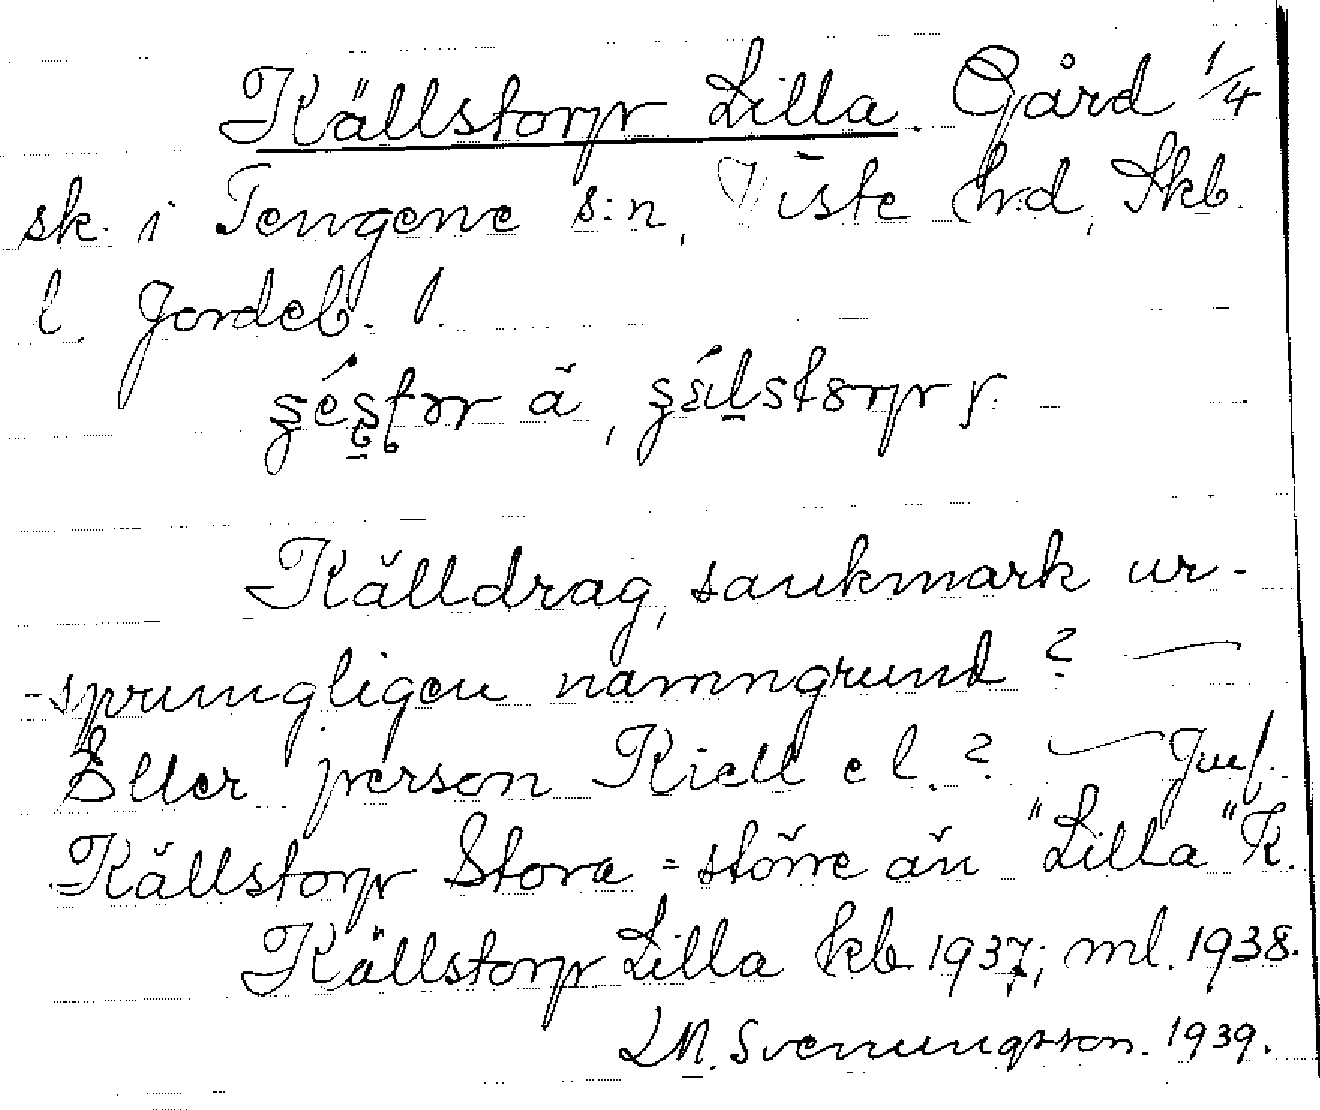 Källstorp Lilla. Gård 1/4
sk. i Tengene s:n, Viste hrd, Skb.
l. Jordeb. 1.
ä, y.
Källdrag, saukmark ur-
-sprungligen namngrund? —
Eller person Kiell el.? — Jmf.
Källstorp Stora = större än "Lilla" K.
Källstorp Lilla kb 1937; ml. 1938.
LM. Svenungsson. 1939.